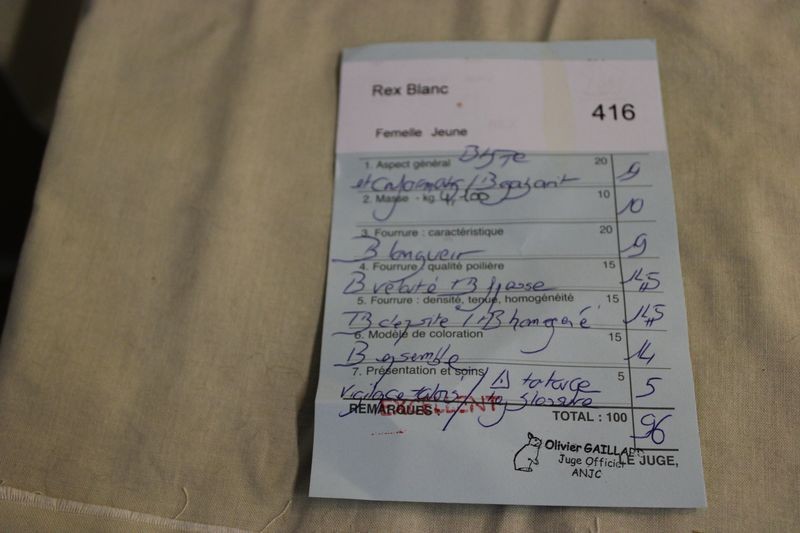 Rex Blanc
416
Femelle Jeune
1. Aspect général B type 20
19
2. Masse - kg 4,100 10
10
3. Fourrure : caractéristique 20
19
B longueur
4. Fourrure / qualité poilière 15
14,5
B velouté TB
5. Fourrure : densité, tenue, homogénéité 15
14,5
TB densité / TB homogéné
6. Modèle de coloration 15
14
B ensemble
7. Présentation et soins 5
5
REMARQUES : EXCELLENT
TOTAL : 100
96
Olivier GAILLARD
Juge Officiel
LE JUGE,
ANJC